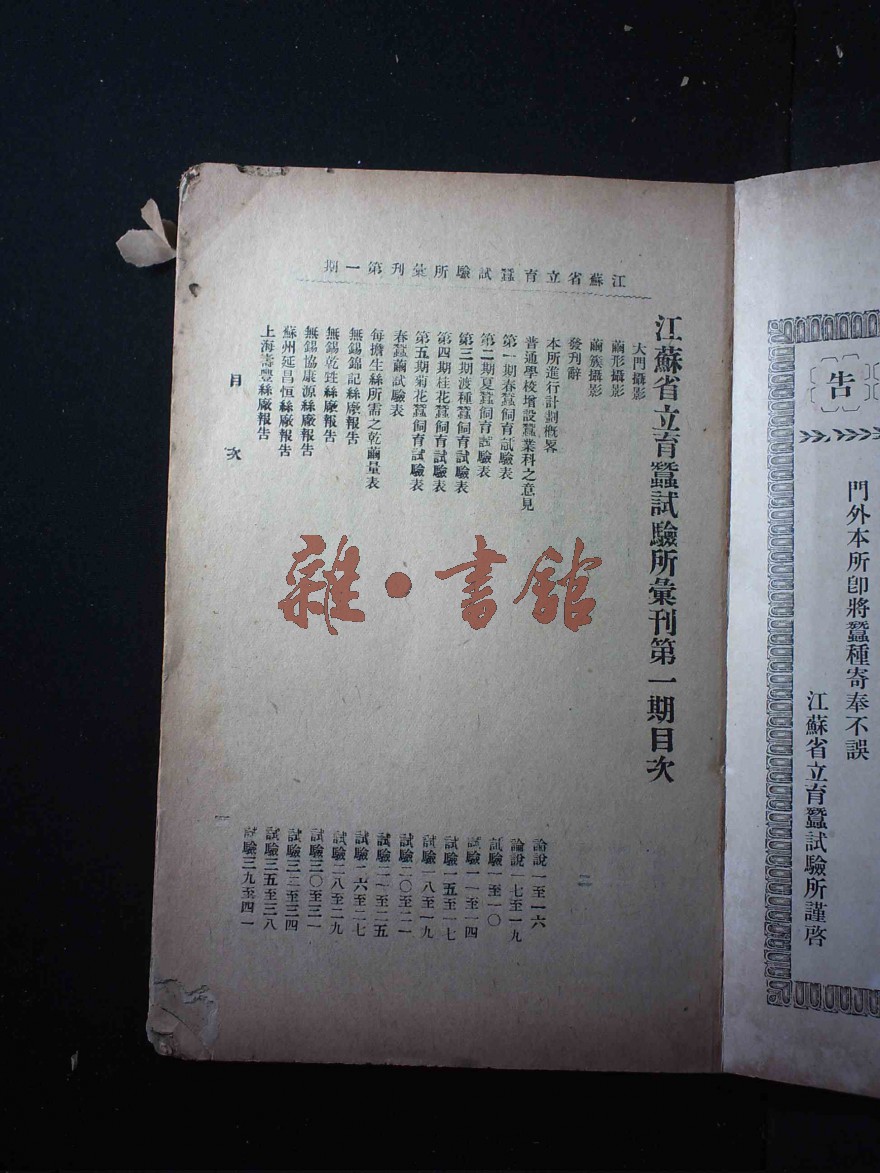 告
門外本所卽將蠶種寄奉不誤
江蘇省立育蠶試驗所謹啓
江蘇省立育蠶試驗所彙刊第一期
江蘇省立育蠶試驗所彙刊第一期目次
大門攝影
繭形攝影
繭簇攝影
發刊辭
本所進行計劃概畧 論說一至一六
普通學校增設蠶業科之意見 論說一七至一九
第一期春蠶飼育試驗表 試驗一至一〇
第二期夏蠶飼育試驗表 試驗一一至一四
第三期渡種蠶飼育試驗表 試驗一五至一七
第四期桂花蠶飼育試驗表 試驗一八至一九
第五期菊花蠶飼育試驗表 試驗二〇至二一
春蠶繭試驗表 試驗二二至二五
每擔生絲所需之乾繭量表 試驗二六至二七
無錫錦記絲廠報告 試驗二八至二九
無錫乾甡絲廠報告 試驗三〇至三一
無錫協康源絲廠報告 試驗三二至三四
蘇州延昌恒絲廠報告 試驗三五至三八
上海壽豐絲廠報告 試驗三九至四一
目次 一
雜·書館